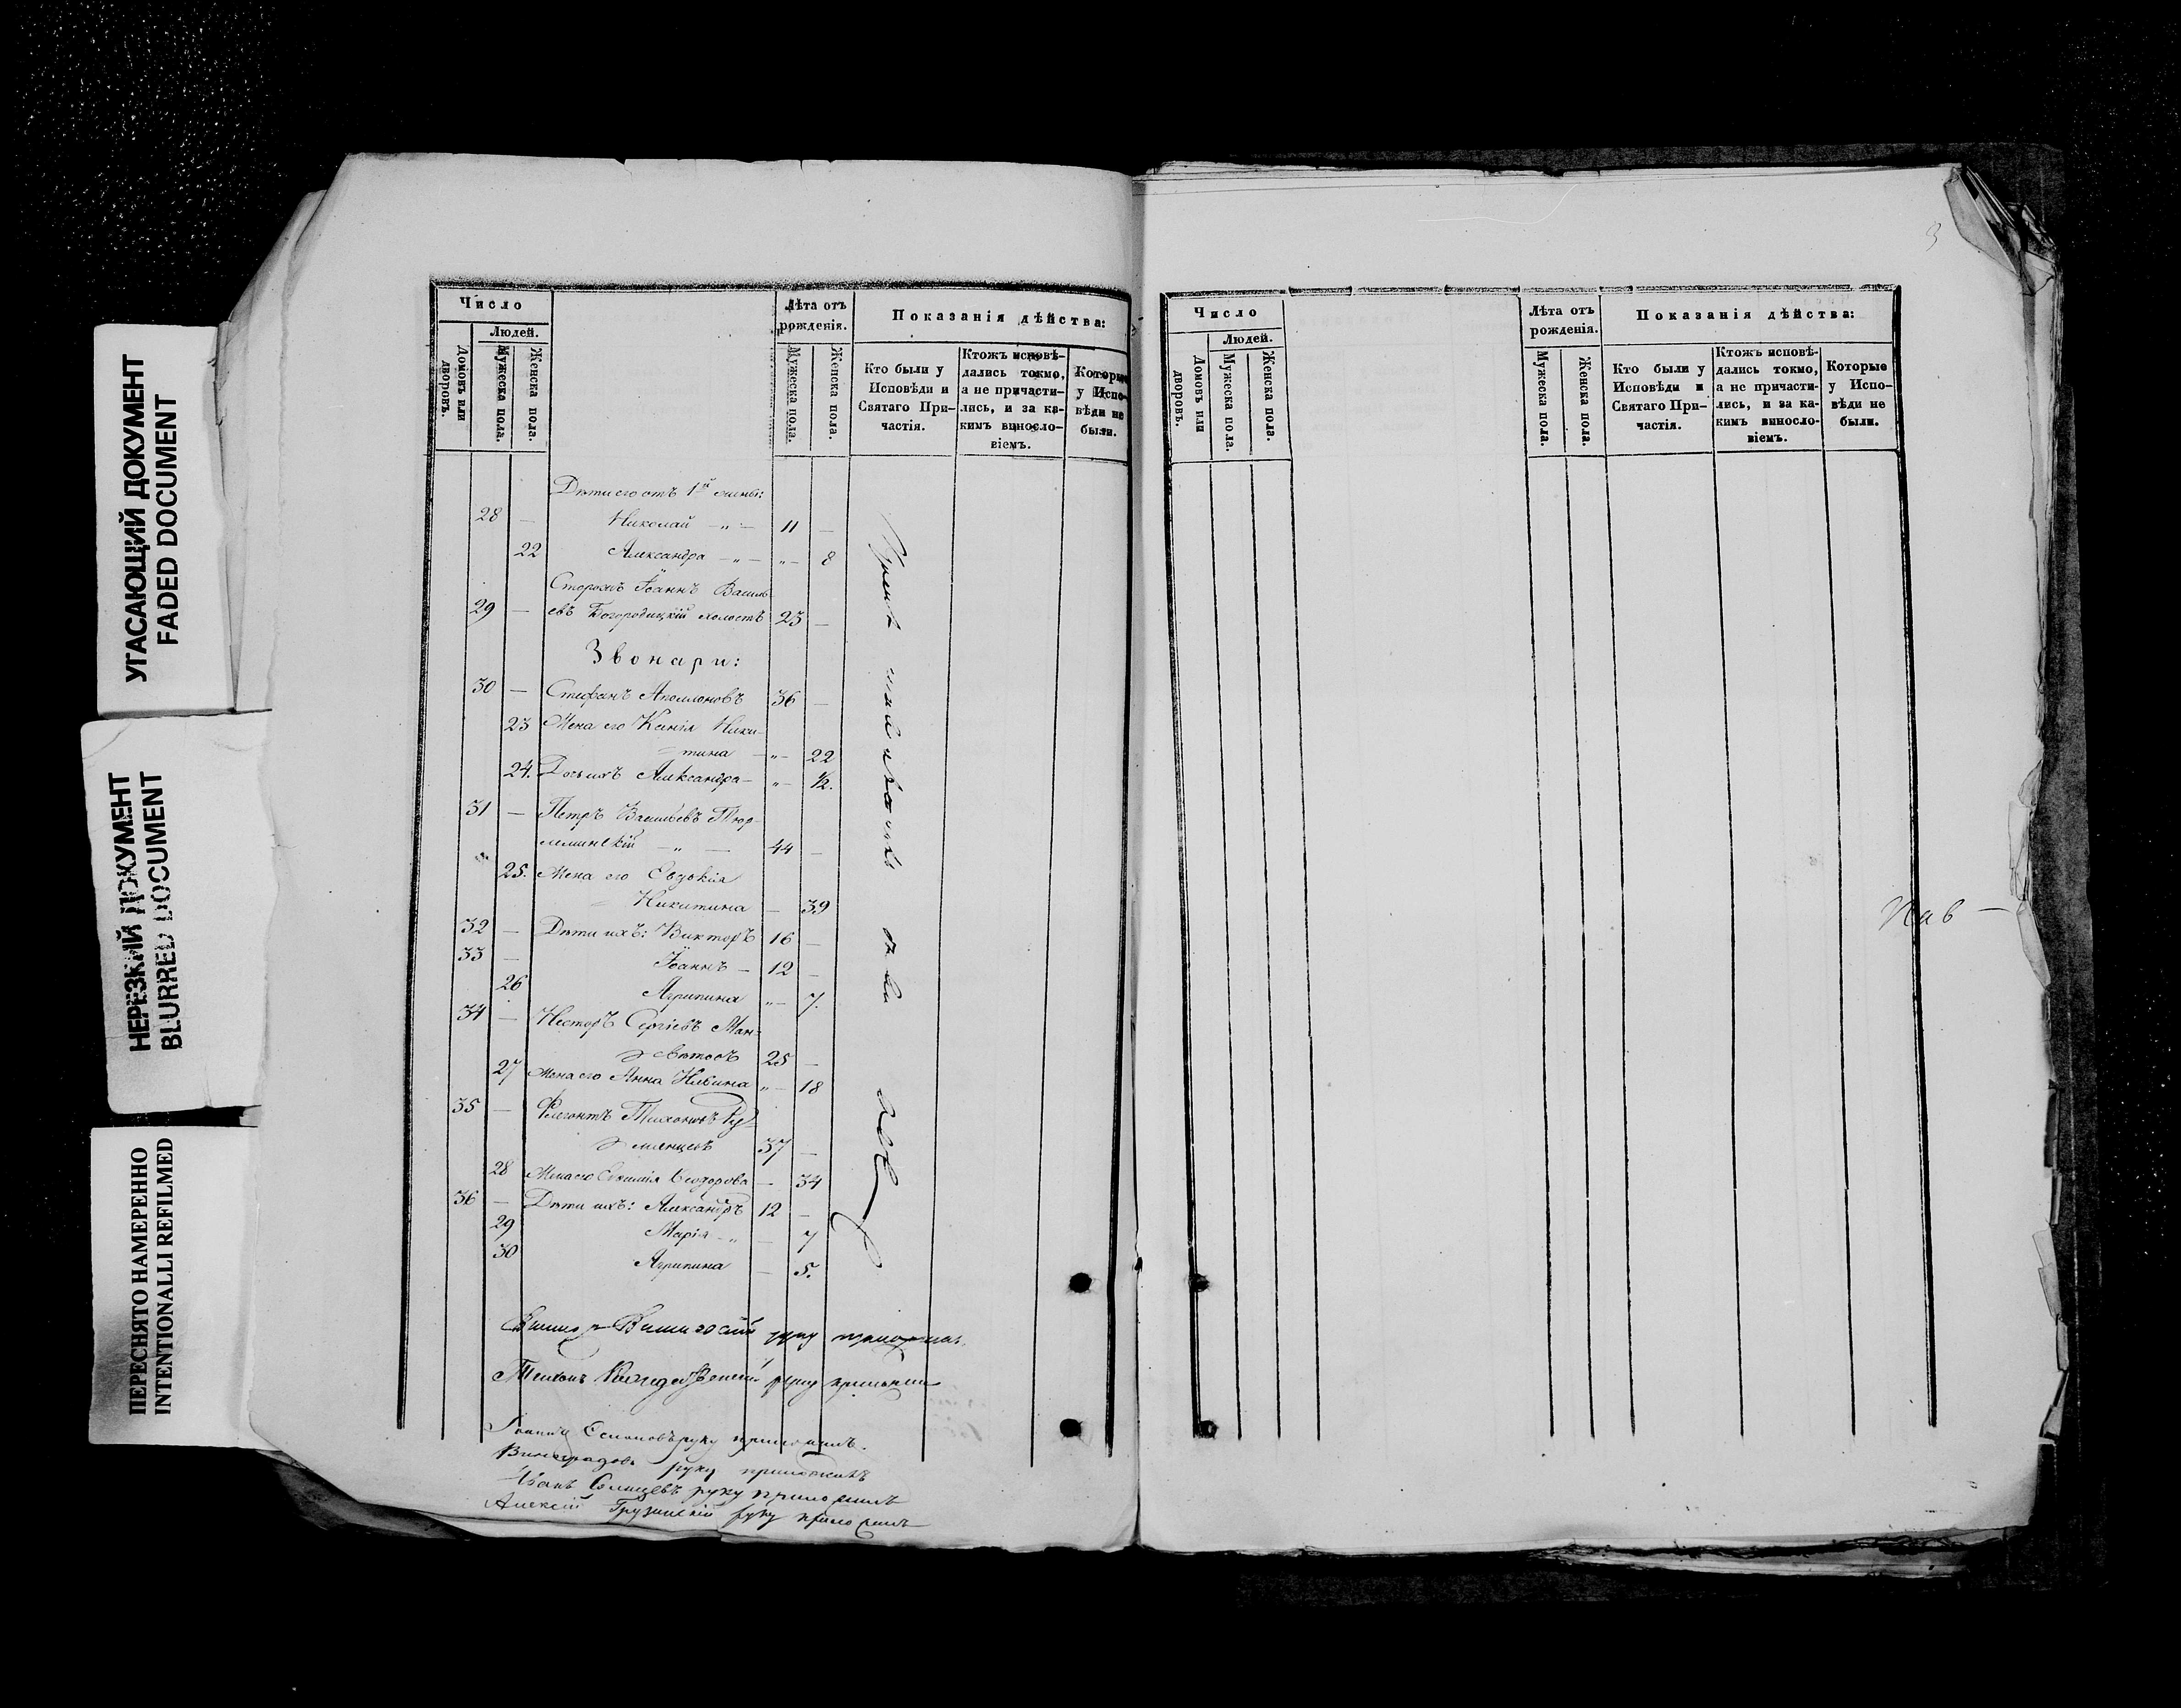 УГАСАЮЩИЙ ДОКУМЕНТ
FADED DOCUMENT
НЕРЕЗКИЙ ДОКУМЕНТ
BLURRED DOCUMENT
ПЕРЕСНЯТО НАМЕРЕННО
INTENTIONALLI REFILMED
Число
Людей.
Домовъ или дворовъ.
Мужеска пола.
Женска пола.
Лѣта отъ рожденія.
Мужеска пола.
Женска пола.
Показанія дѣйства:
Кто были у Исповѣди и Святаго При-частія.
Ктожъ исповѣ-дались токмо, а не причасти-лись, и за ка-кимъ винословіемъ.
Которые у Испо-вѣди не были.
Дѣти его отъ 1й жены:
28 — Николай — „ — 11 —
22 Александра — „ — „ — 8
Сторожъ Іоаннъ Василь
29 — евъ Богородицкій холостъ 23 —
Звонари:
30 — Стефанъ Аполлоновъ 36 —
23 Жена его Ксенія Ники-
тина — „ — 22
24. Дочь ихъ Александра — „ — ½.
31 — Петръ Васильевъ Тюр-
леминскій — „ — 44 —
25. Жена его Евдокія
Никитина — 39
32 — Дѣти ихъ: Викторъ 16 —
33 — Іоаннъ — 12 —
26 Агрипина „ — 7.
34 — Несторъ Сергіевъ Ман-
25 —
27 Жена его Анна Ильина „ — 18
35 — Флегонтъ Тихоновъ Ру-
мянцевъ 37 —
28 Жена его Евфимія Ѳеодорова — 34
36 — Дѣти ихъ: Александръ 12 —
29 Марія — „ — 7
30 Агрипина — 5.
руку приложилъ
Тихонъ руку приложилъ
Іоаннъ руку приложилъ.
Виноградовъ руку приложилъ
Иванъ Солнцевъ руку приложилъ
Алексій Грузинскій руку приложилъ
3
Число
Людей.
Домовъ или дворовъ.
Мужеска пола.
Женска пола.
Лѣта отъ рожденія.
Мужеска пола.
Женска пола.
Показанія дѣйства:
Кто были у Исповѣди и Святаго При-частія.
Ктожъ исповѣ-дались токмо, а не причасти-лись, и за ка-кимъ винословіемъ.
Которые у Испо-вѣди не были.